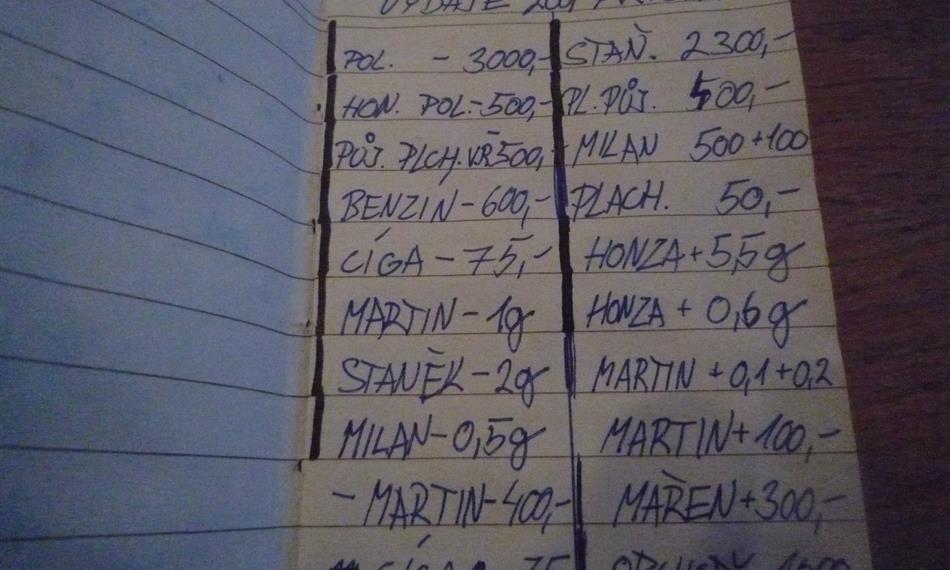 POL. - 3000,- STAŇ. 2300,-
HON. POL.-500,- PL. PŮJ. 500,-
PŮJ. PLCH. 500,- MILAN 500+100
BENZIN-600,- PLACH. 50,-
CÍGA-75,- HONZA+5,5g
MARTIN-1g HONZA + 0,6g
STANĚK-2g MARTIN +0,1+0,2
MILAN-0,5g MARTIN+100,-
- MARTIN-400,- MAŘEN+300,-